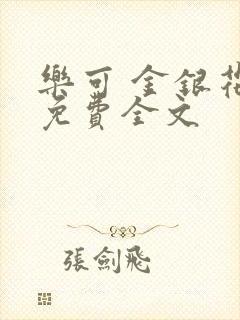 樂可 金銀花
免費全文
張劍飛